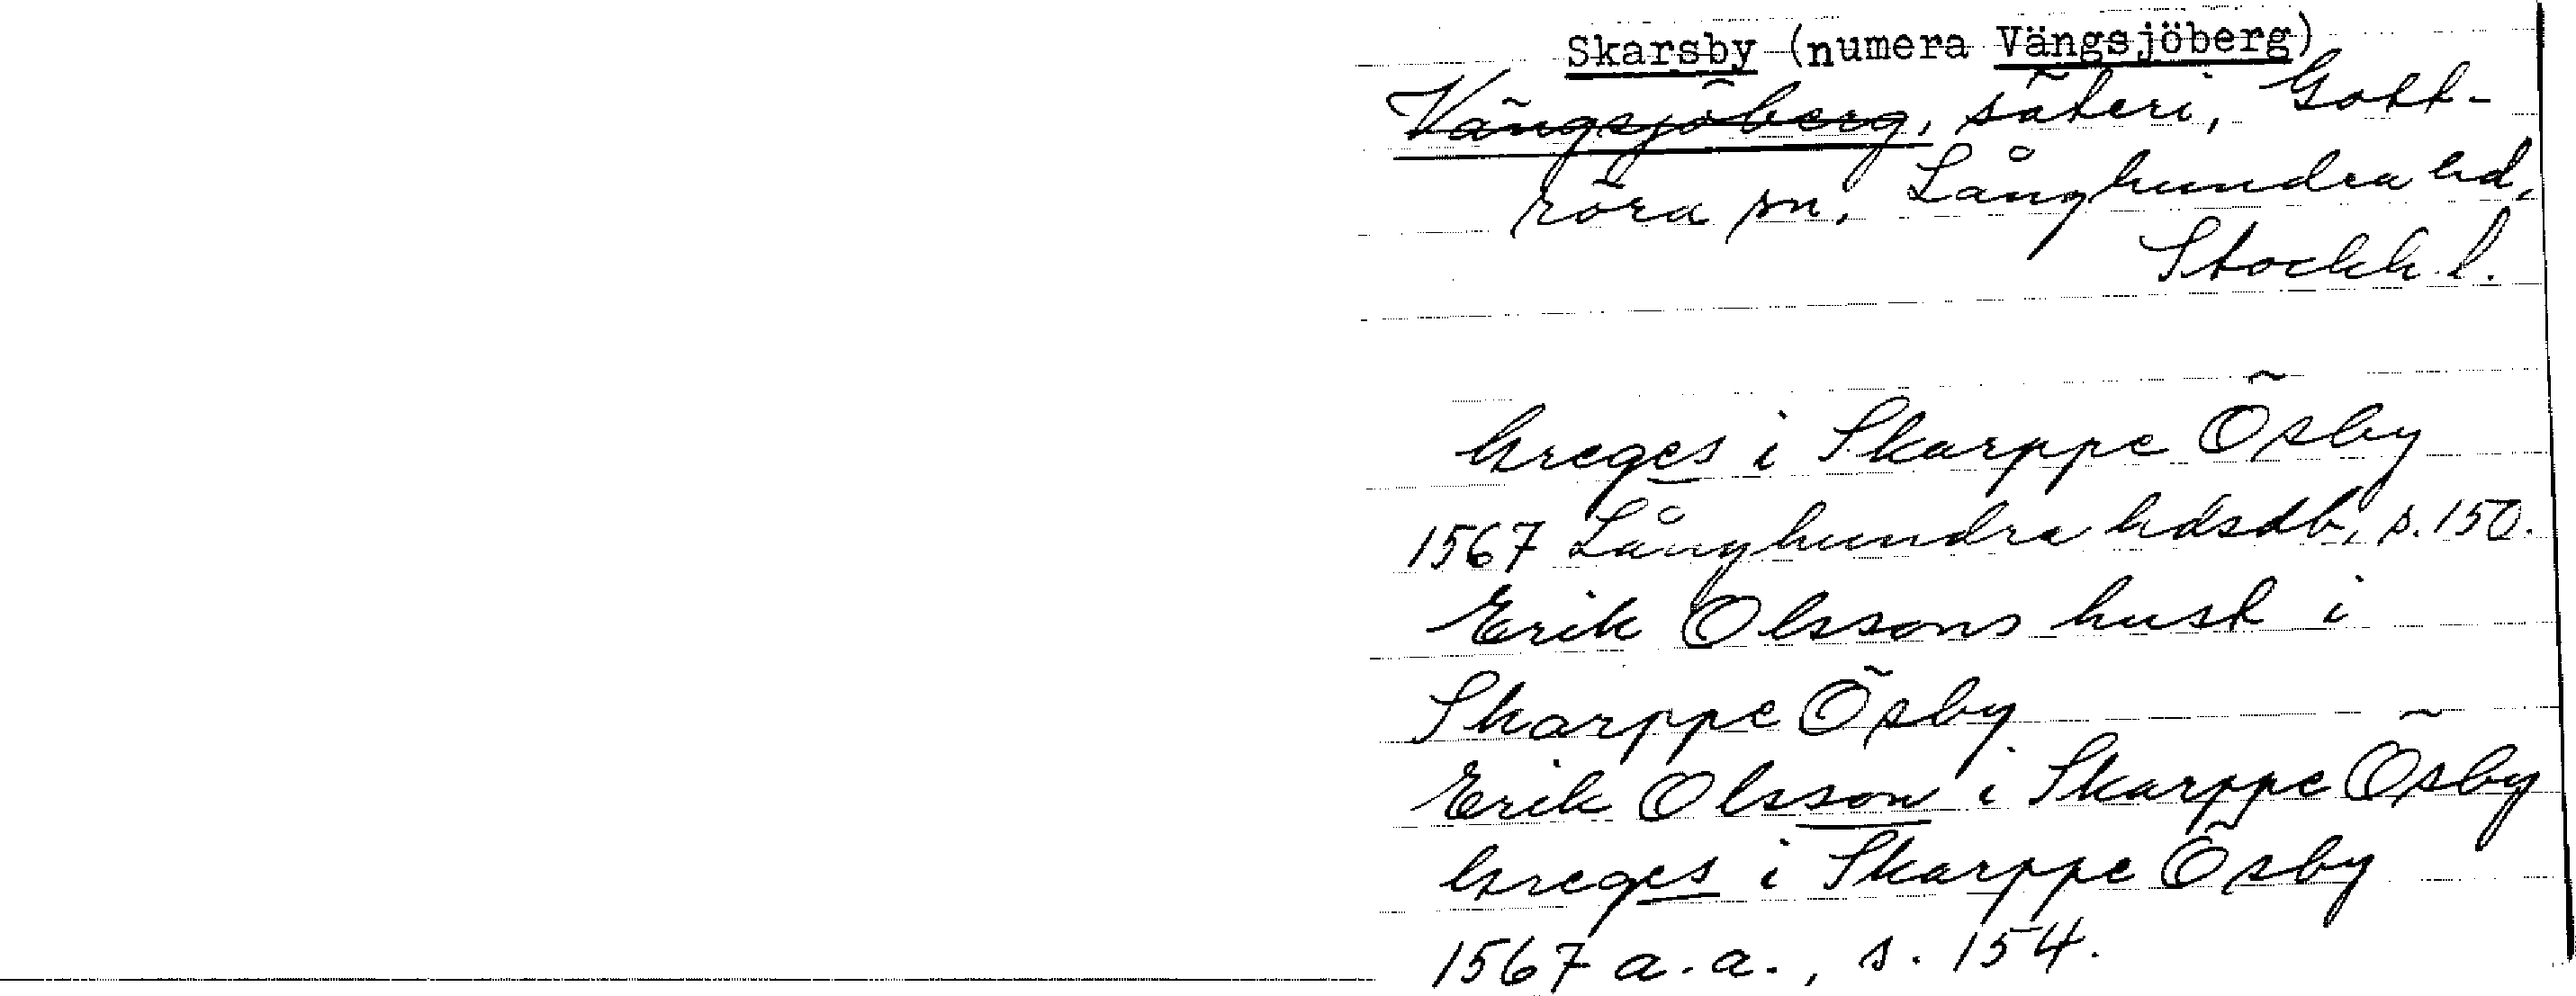 Skarsby (numera Vängsjöberg)
Vängsjöberg, säteri, Gott-
röra sn. Långhundra hd,
Stockh. l.
Greges i Skarppe Ösby
1567 Långhundra hdsdb, s. 150.
Erik Olssons hust i
Skarppe Ösby
Erik Olsson i Skarppe Ösby
Greges i Skarppe Ösby
1567 a.a., s. 154.